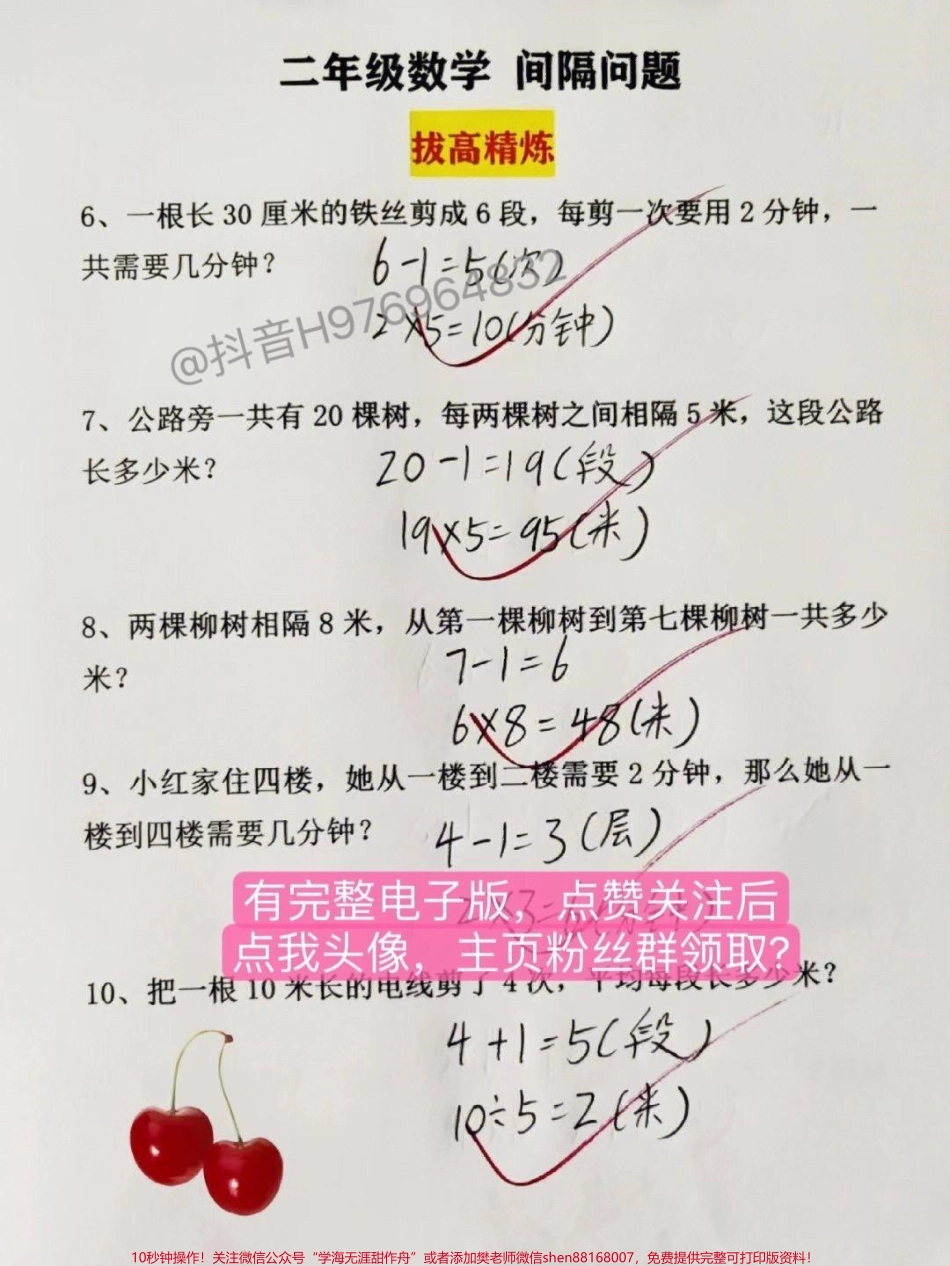 二年级数学 间隔问题
拔高精炼
6、一根长 30 厘米的铁丝剪成 6 段，每剪一次要用 2 分钟，一
共需要几分钟？
6-1=5(次)
@抖音H976964832
2×5=10(分钟)
7、公路旁一共有 20 棵树，每两棵树之间相隔 5 米，这段公路
长多少米？
20-1=19(段)
19×5=95(米)
8、两棵柳树相隔 8 米，从第一棵柳树到第七棵柳树一共多少
米？
7-1=6
6×8=48(米)
9、小红家住四楼，她从一楼到二楼需要 2 分钟，那么她从一
楼到四楼需要几分钟？
4-1=3(层)
有完整电子版，点赞关注后
点我头像，主页粉丝群领取?
10、把一根 10 米长的电线剪了 4 次，平均每段长多少米？
4+1=5(段)
10÷5=2(米)
10秒钟操作！关注微信公众号“学海无涯甜作舟”或者添加樊老师微信shen88168007，免费提供完整可打印版资料！